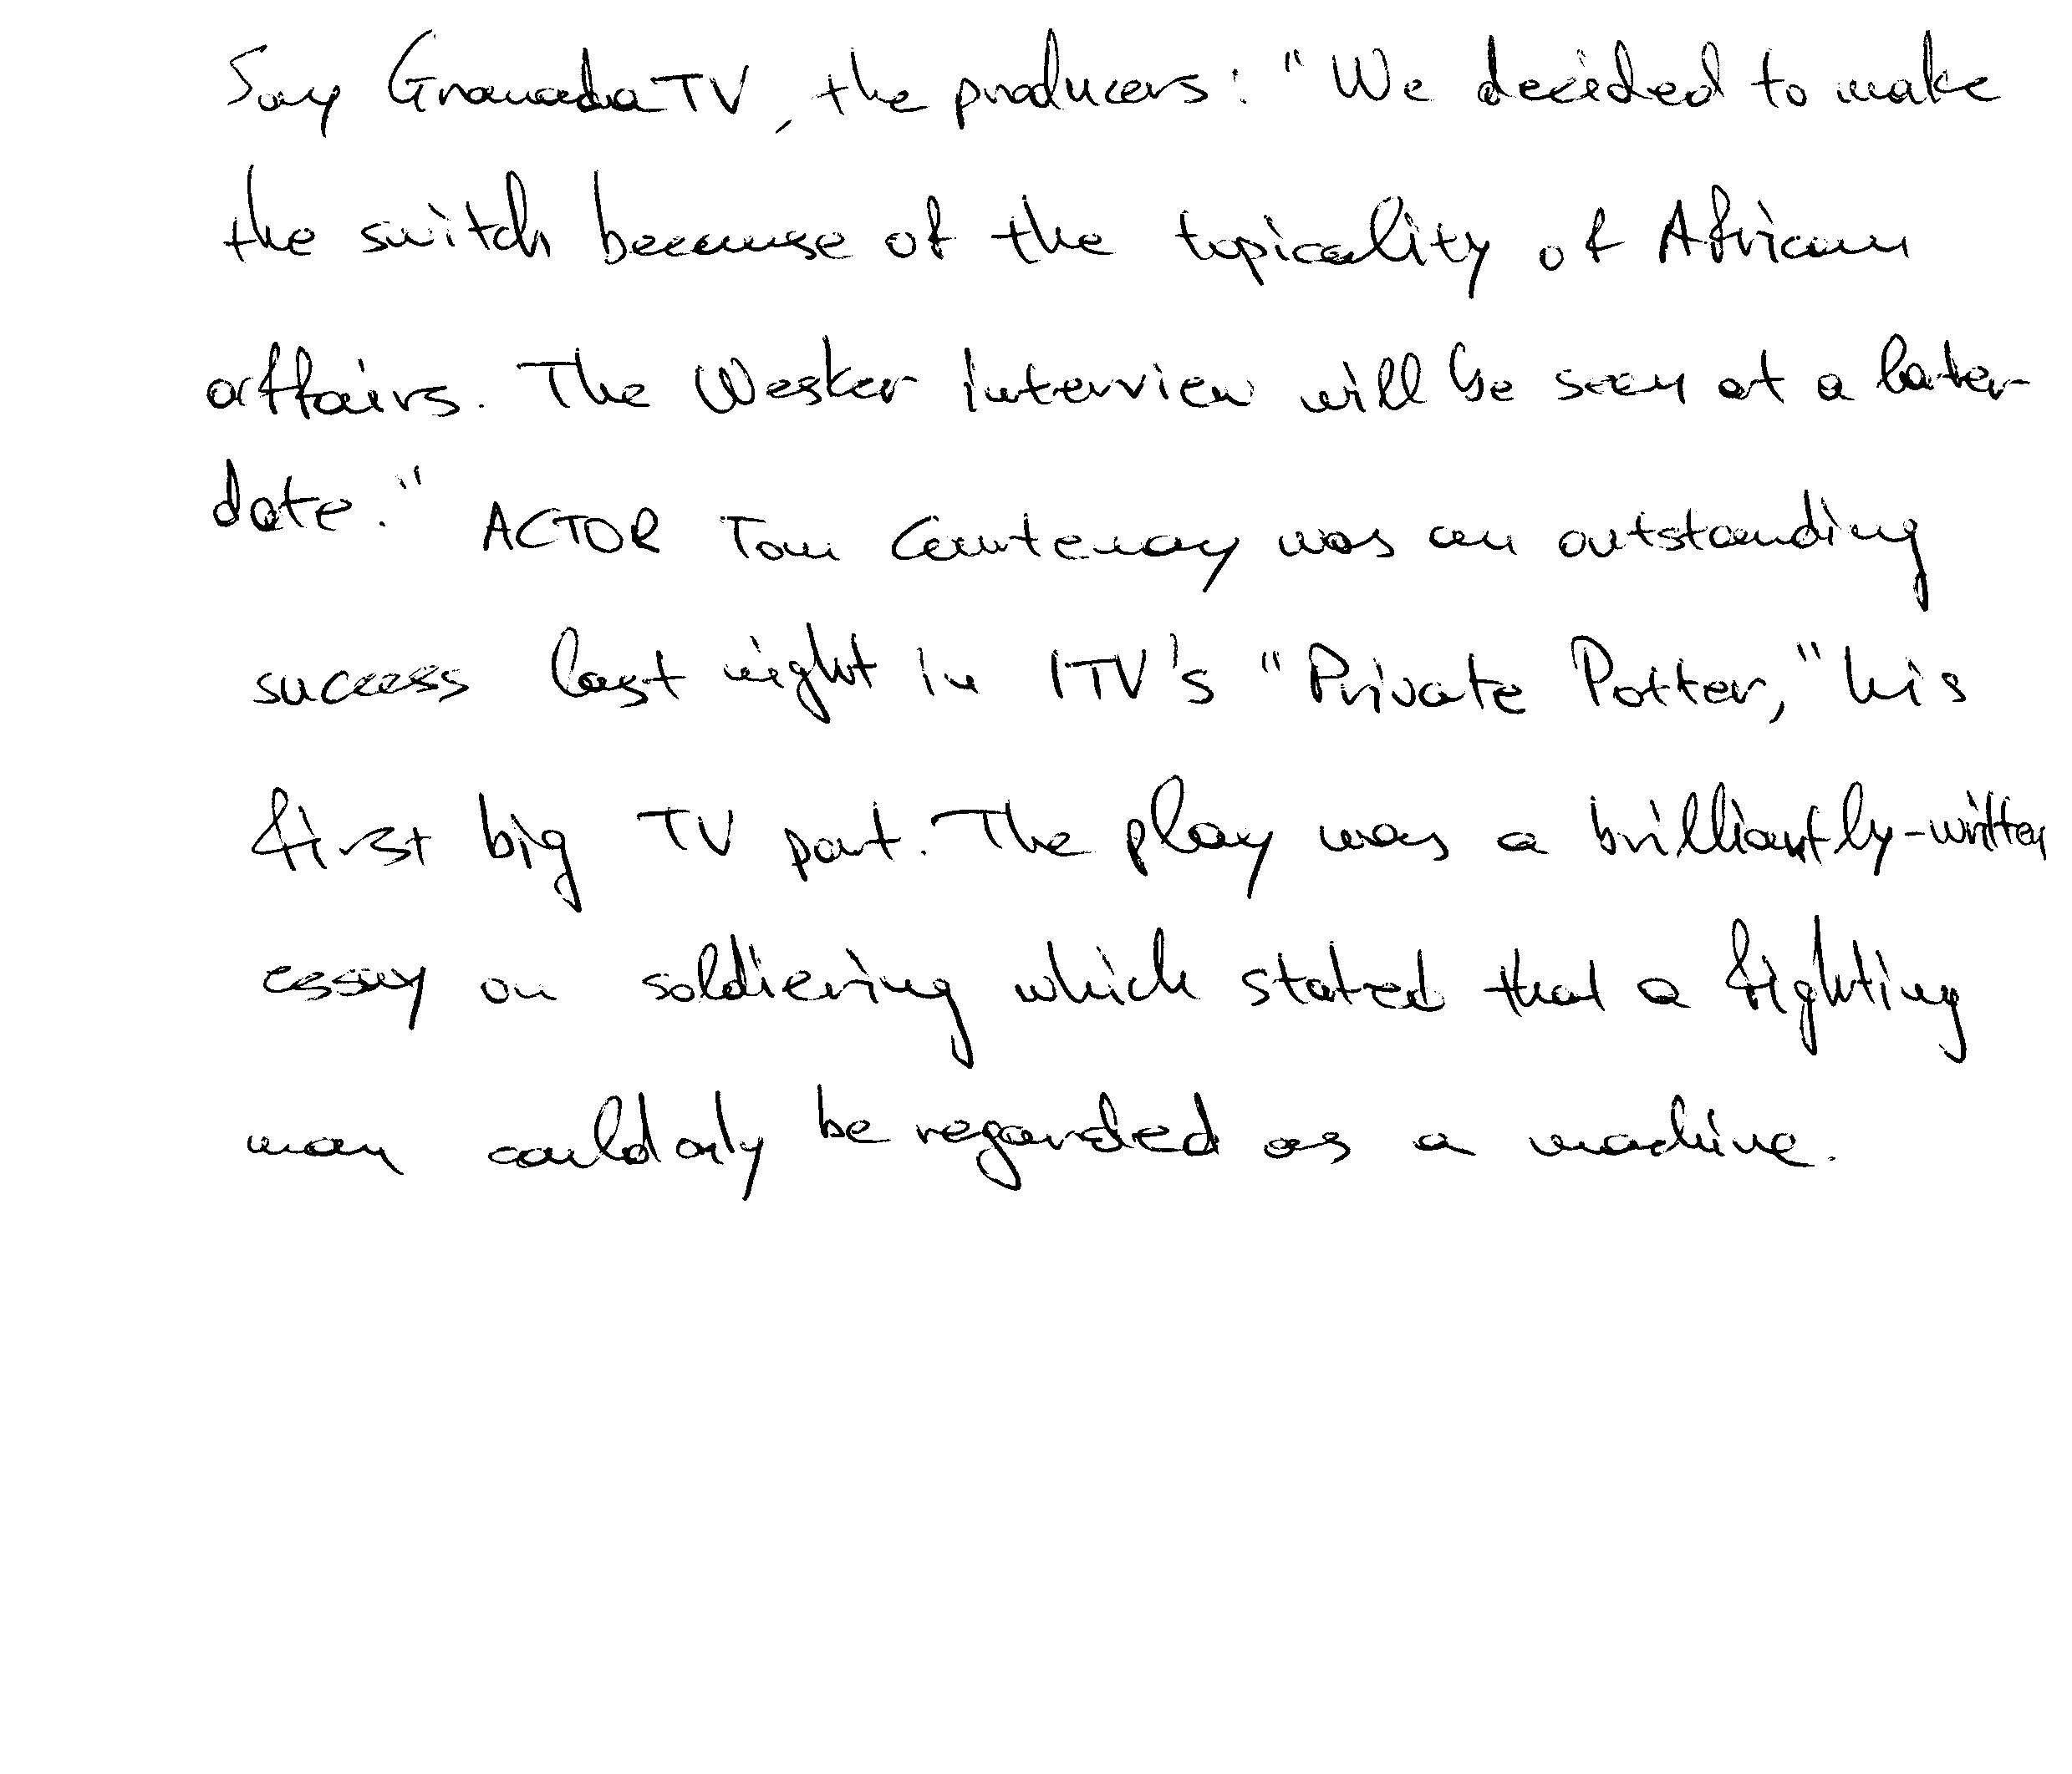 Say Granada TV, the producers: "We decided to make
the switch because of the topicality of African
affairs. The Wesker interview will be seen at a later
date." ACTOR Tom Courtenay was an outstanding
success last night in ITV's "Private Potter," his
first big TV part. The play was a brilliantly-written
essay on soldiering which stated that a fighting
man could only be regarded as a machine.